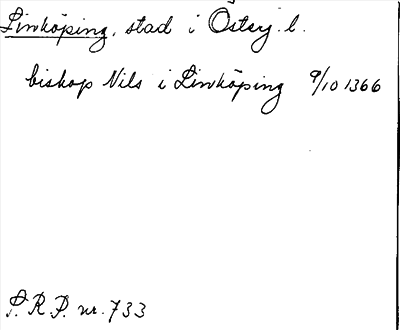 Linköping, stad i Östsg. l.
biskop Nils i Linköping 9/10 1366
S. R. P. nr. 733